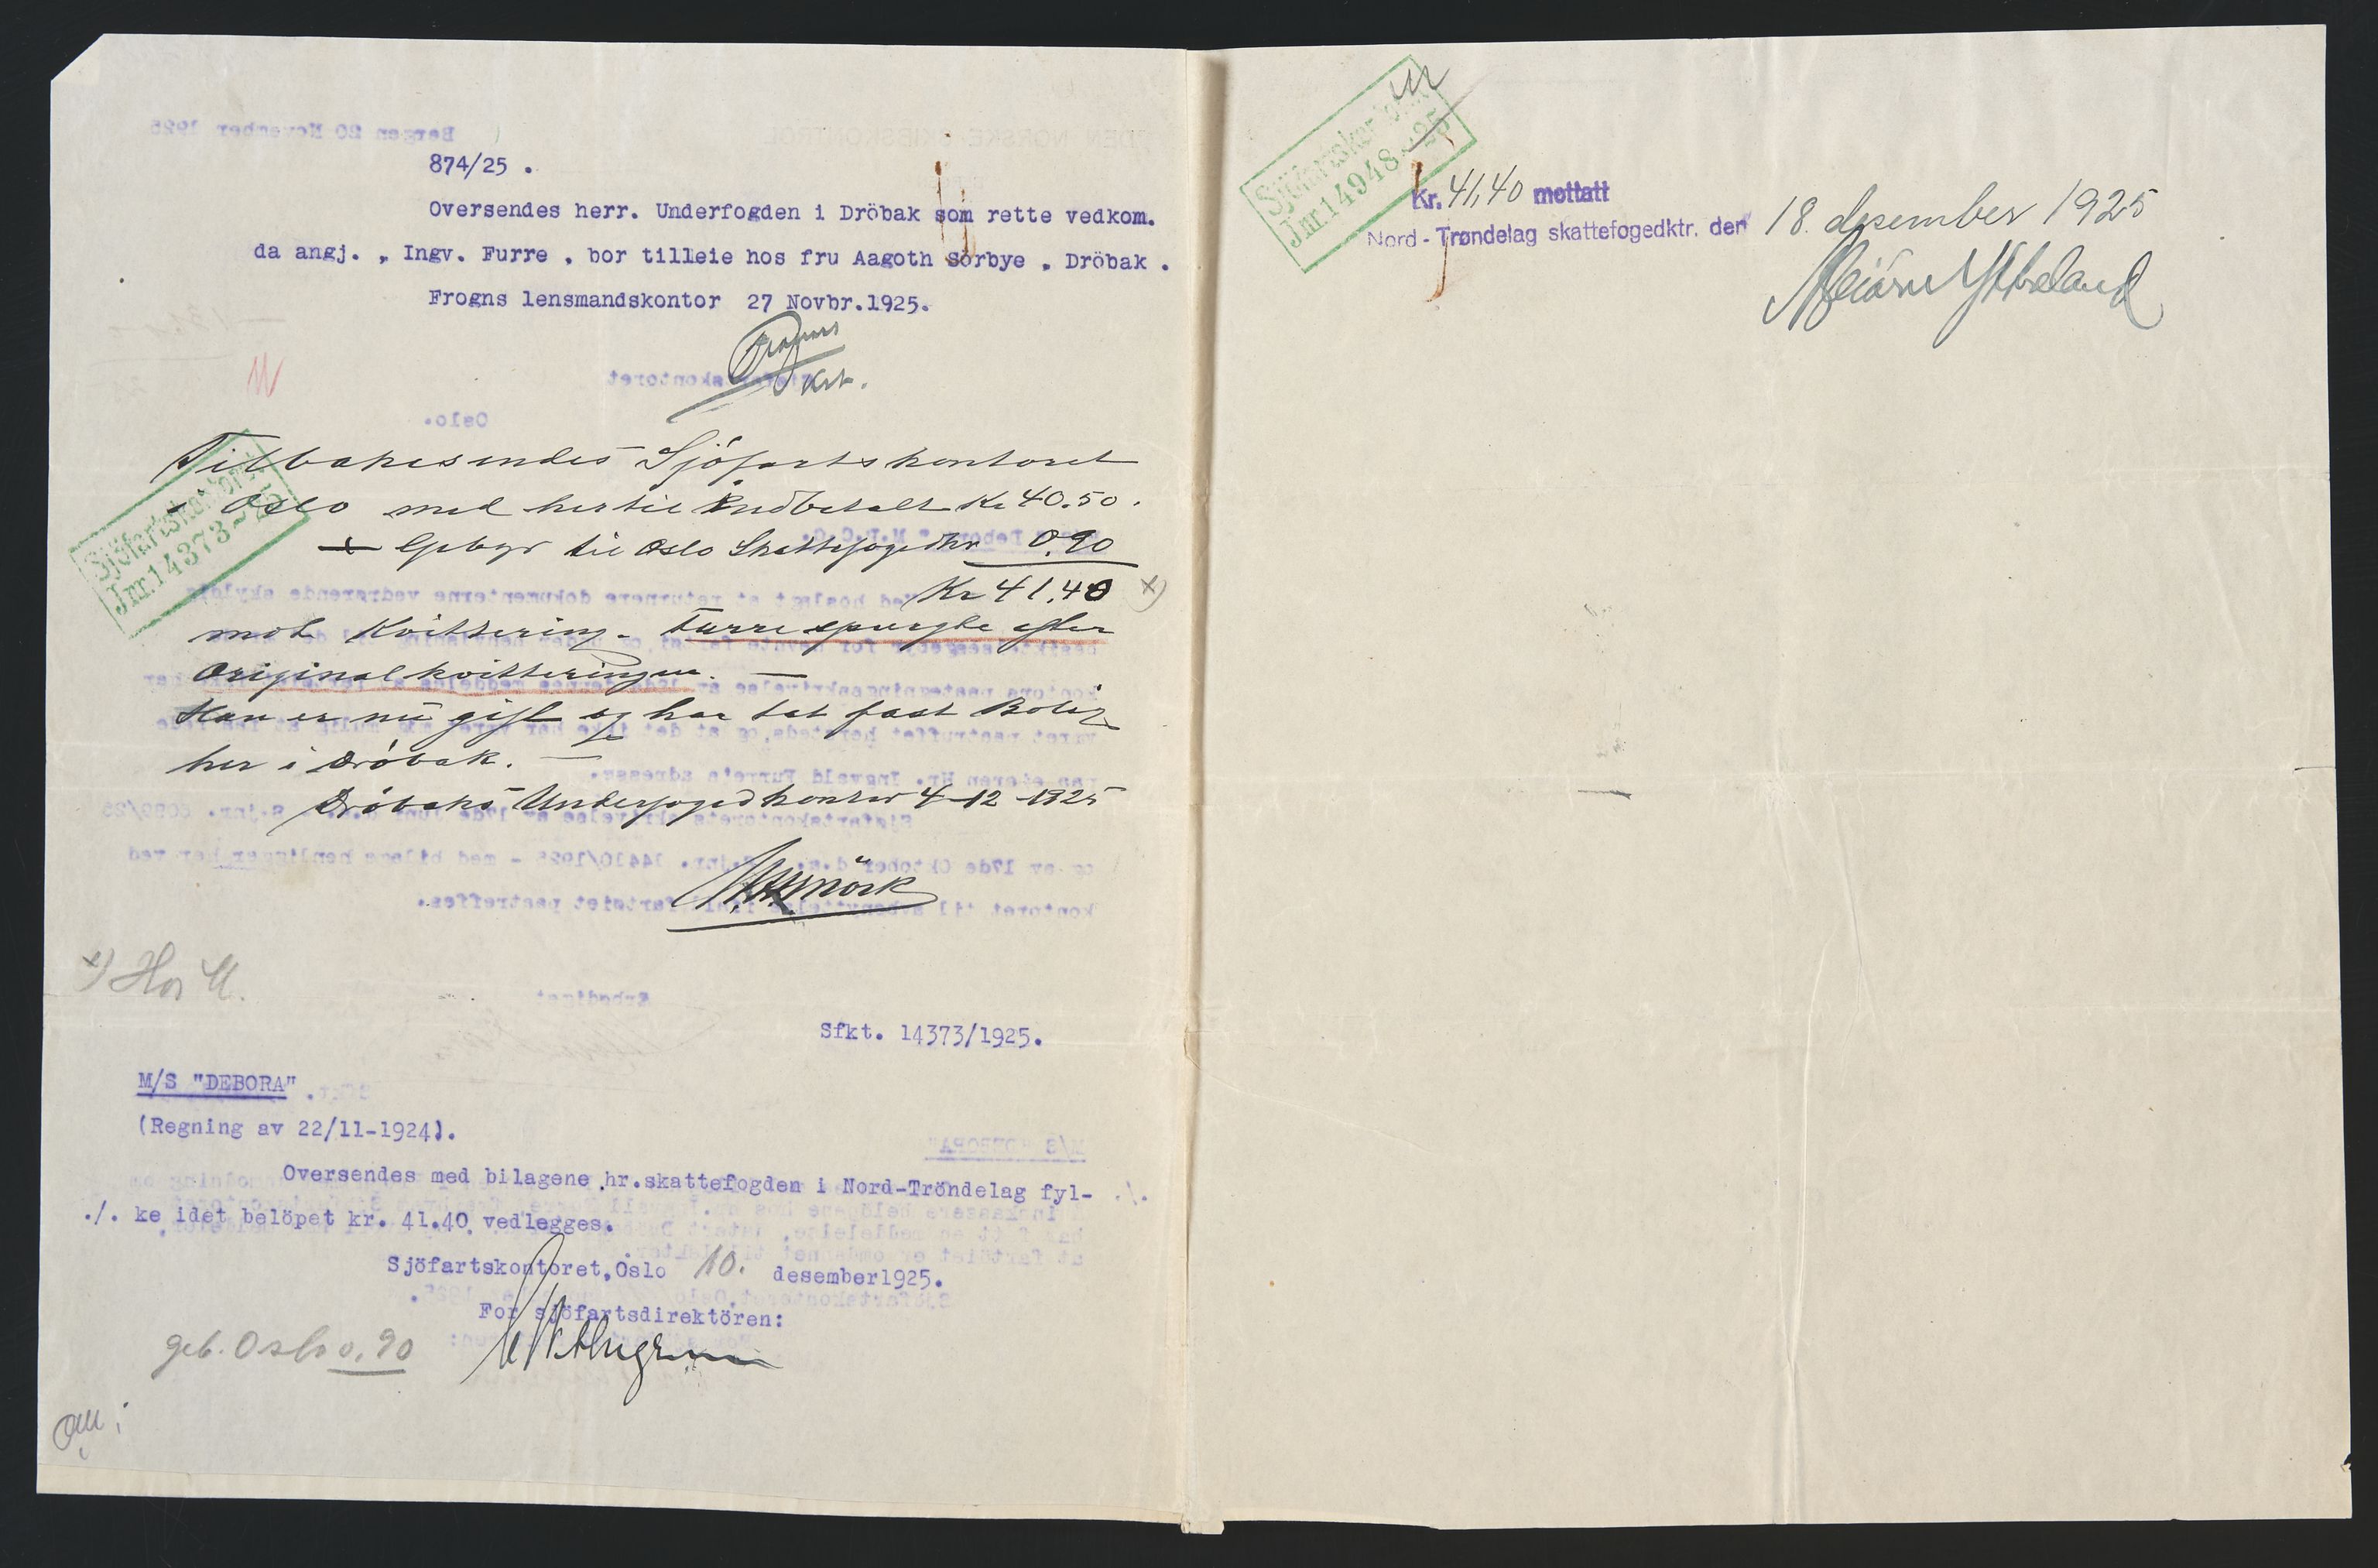 874/25 .
Oversendes herr. Underfogden i Dröbak som rette vedkom.
da angj. , Ingv. Furre , bor tilleie hos fru Aagoth Sörbye , Dröbak .
Frogns lensmandskontor 27 Novbr.1925.
Tilbakesendes Sjöfartskontoret
Oslo med hertil indbetalt Kr 40.50.
+ Gebyr til Oslo Skattefogedktr 0.90
Kr 41.40 x)
mot Kvittering. Furre spurgte efter
Originalkvitteringen. —
Han er nu gift og har tat fast Bolig
her i Dröbak. —
Dröbaks Underfogedkontor 4-12-1925
Sjöfartskontoret
Jnr.14373-25
x) Hos U.
Sfkt. 14373/1925.
M/S "DEBORA"
(Regning av 22/11-1924).
Oversendes med bilagene hr.skattefogden i Nord-Tröndelag fyl-
./. ke idet belöpet kr. 41.40 vedlegges.
Sjöfartskontoret,Oslo 10. desember1925.
For sjöfartsdirektören:
geb. Oslo 0,90
Sjöfartskontoret
Jnr.14948-25
Kr. 41,40 mottatt
Nord-Trøndelag skattefogedktr. den 18. desember 1925